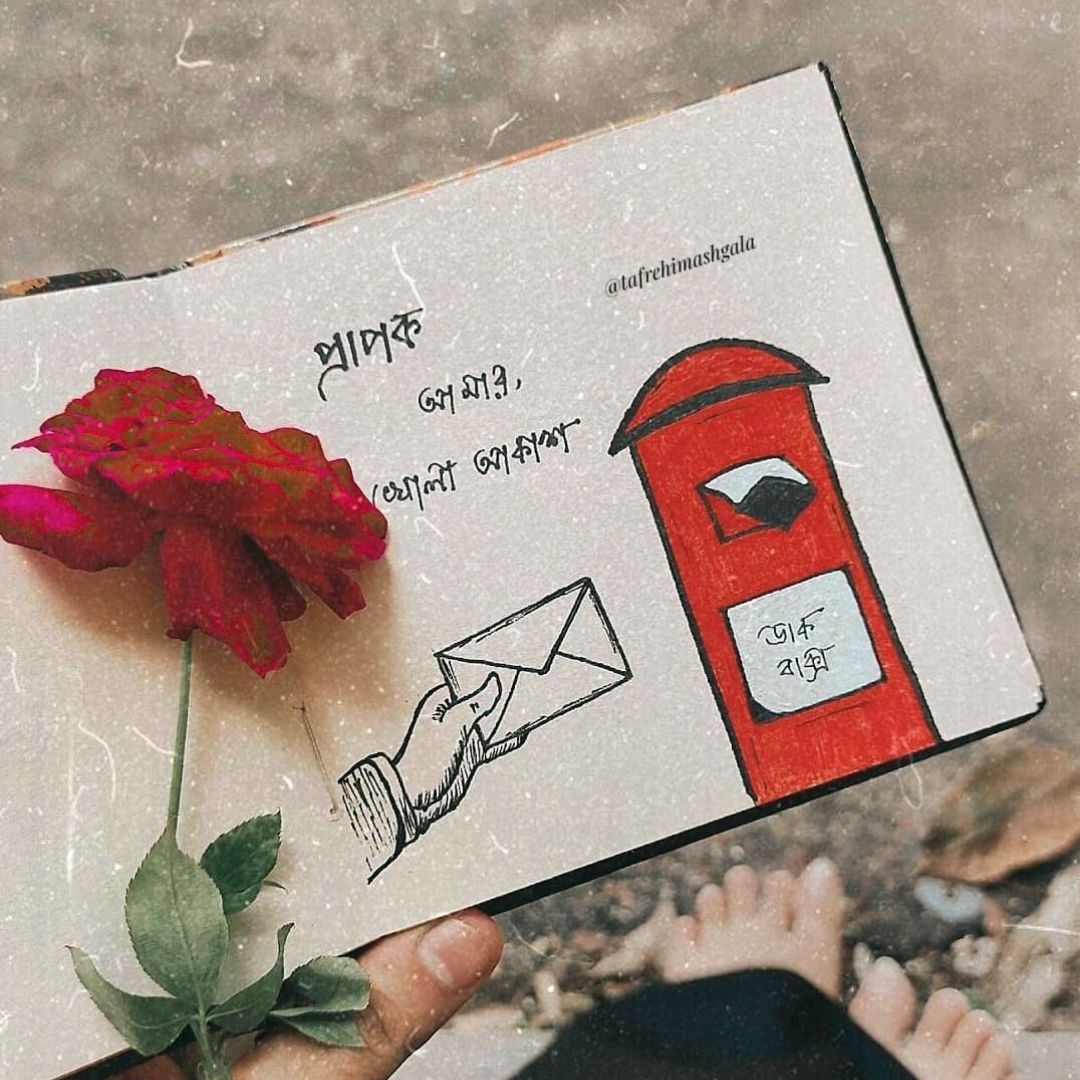 @tafrehimashgala
প্রাপক
আমার,
খোলা আকাশ
ডাক
বাক্স